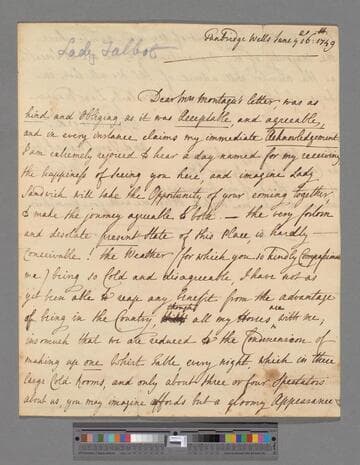 Tunbridge Wells June 16th 1749
Lady Talbot
Dear Mrs Montagu's letter, was as
kind, and Obliging, as it was Acceptable, and agreeable,
and in every instance claims my immediate Acknowledgement
I am extremely rejoiced to hear a day named for my receiving
the happiness of seeing you here, and imagine Lady
Sandwich will take the Opportunity of your coming together
to made the journey agreable to both — the very forlorn
and desolate present State of this Place, is hardly
Conceivable! the Weather (for which you so kindly Compassionate
me) being so Cold and disagreeable I have not as
yet been able to reap any benefit from the advantage
of being in the Country, though all my Horses are with me,
insomuch that we are reduced to the
making up one Whist table, every night, which in three
large Cold Rooms, and only about three or four Spectators
about us, you may imagine affords but a gloomy Appearance